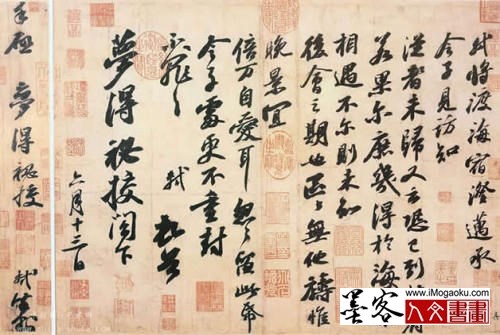 軾將渡海宿澄邁承
令子見訪知
從者未歸又云恐已到桂府
若果尔庶幾得於海
相遇不尔則未知
後會之期也區區無他禱惟
晚景宜
倍万自愛耳忽忽留此帋
令子處更不重封
不罪々 軾頓首
夢得秘校閣下
六月十三日
手啟 夢得秘校 軾
墨客
www.iMogaoku.com
人文書畫